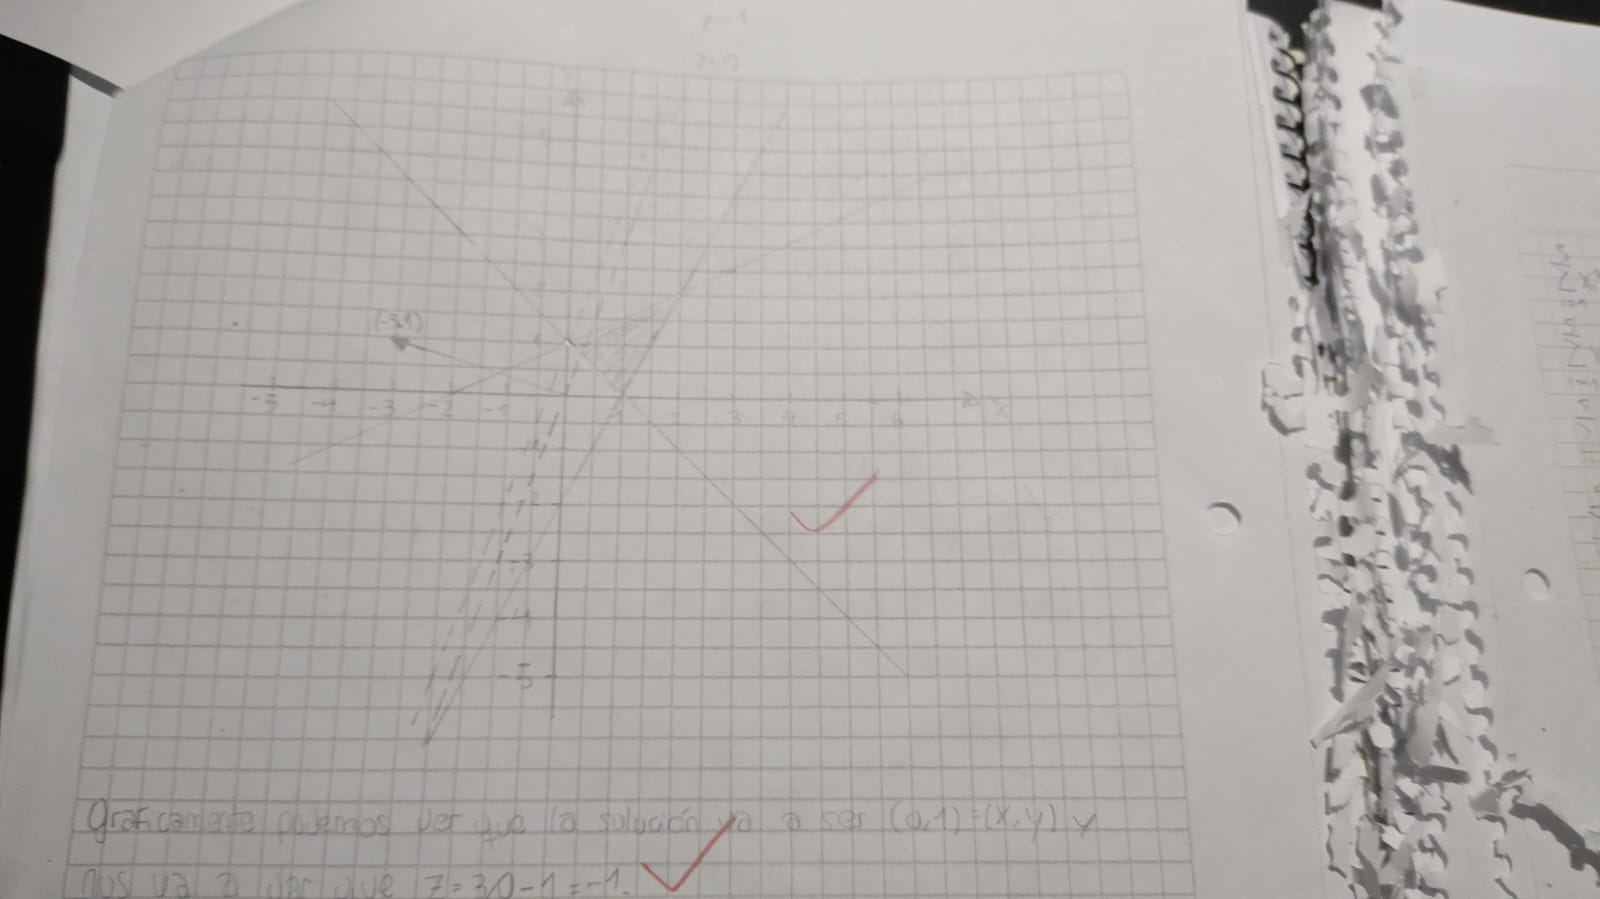 (-3,1)
-5 -4 -3 -2 -1 1 2 3 4 5 6 x
-2
-3
-4
-5
Graficamente podemos ver que la solución va a ser (0,1)=(x,y) y
nos va a dar que z=3·0-1=-1.